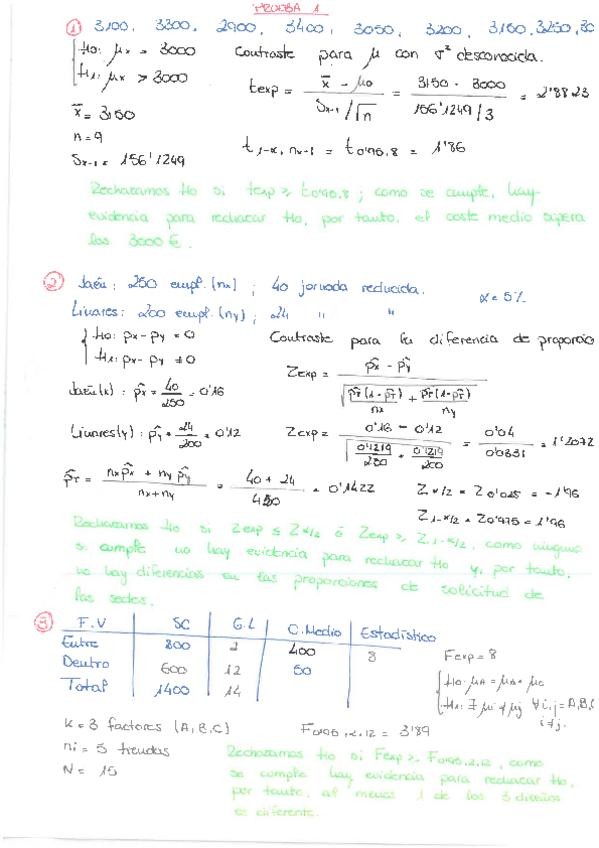 PRUEBA 1
① 3100, 3300, 2900, 3400, 3050, 3200, 3150, 3250, 30
H0: μx = 3000
H1: μx > 3000
Contraste para μ con σ² desconocida.
texp = x̄ - μ0 / Sx-1/√n = 3150 - 3000 / 156'1249/3 = 2'8823
x̄ = 3150
n = 9
Sx-1 = 156'1249
t1-α, nx-1 = t0'95,8 = 1'86
Rechazamos H0 si texp ≥ t0'95,8; como se cumple, hay
evidencia para rechazar H0, por tanto, el coste medio supera
los 3000 €.
② Jaén: 250 empl. (nx); 40 jornada reducida. α = 5%
Linares: 200 empl. (ny); 24 " "
H0: px - py = 0
H1: px - py ≠ 0
Contraste para la diferencia de proporcio
Zexp = p̂x - p̂y / √ p̂T(1-p̂T)/nx + p̂T(1-p̂T)/ny
Jaén(x): p̂x = 40/250 = 0'16
Linares(y): p̂y = 24/200 = 0'12
Zexp = 0'16 - 0'12 / √ 0'1219/250 + 0'1219/200 = 0'04 / 0'0331 = 1'2072
p̂T = nx p̂x + ny p̂y / nx + ny = 40 + 24 / 450 = 0'1422
Zα/2 = Z0'025 = -1'96
Z1-α/2 = Z0'975 = 1'96
Rechazamos H0 si Zexp ≤ Zα/2 ó Zexp ≥ Z1-α/2, como ninguno
se cumple no hay evidencia para rechazar H0 y, por tanto,
no hay diferencias en las proporciones de solicitud de
las sedes.
③ F.V SC G.L C.Medio Estadístico
Entre 800 2 400 8
Dentro 600 12 50
Total 1400 14
Fexp = 8
H0: μA = μB = μC
H1: ∃ μi ≠ μj ∀ i,j = A,B,C
i ≠ j.
k = 3 factores (A, B, C)
ni = 5 tiendas
N = 15
F0'95, 2, 12 = 3'89
Rechazamos H0 si Fexp ≥ F0'95,2,12, como
se cumple hay evidencia para rechazar H0,
por tanto, al menos 1 de los 3 diseños
es diferente.